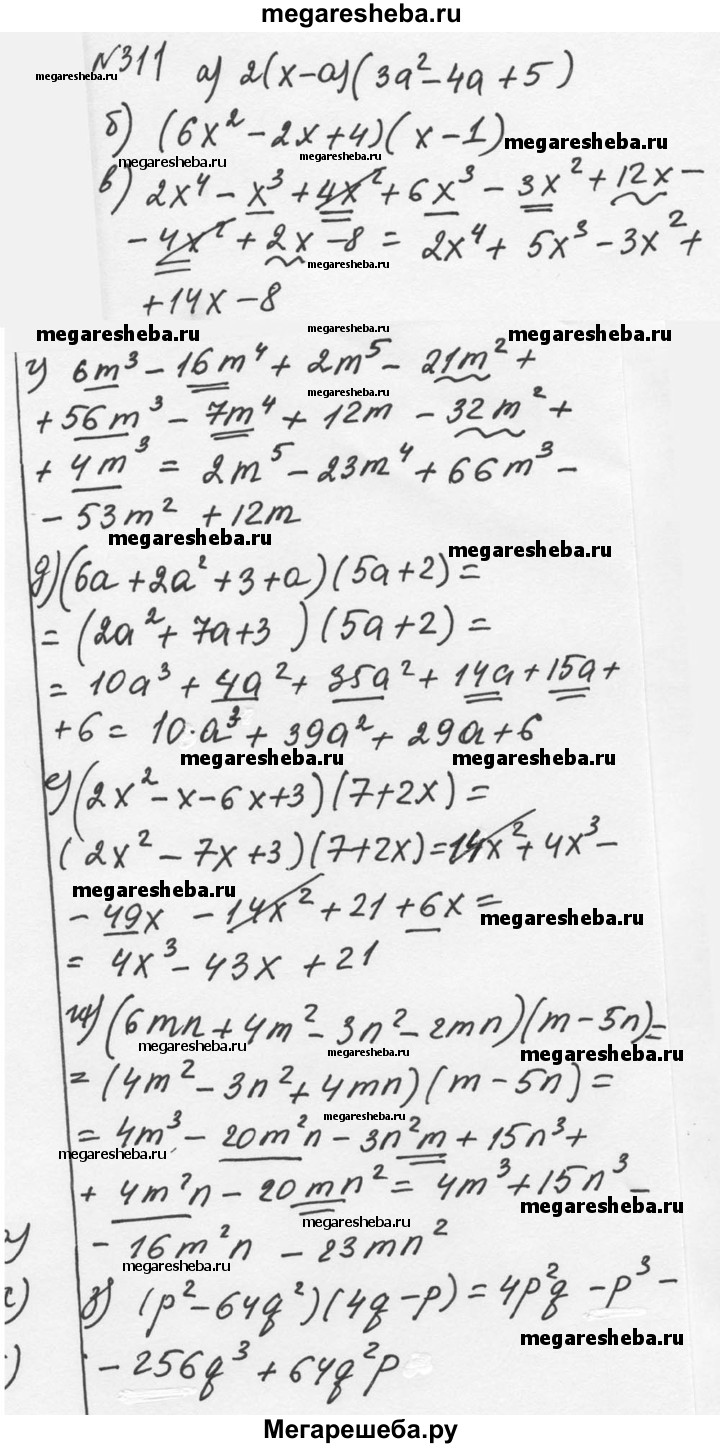 megaresheba.ru
№311 а) 2(x-a)(3a²-4a+5)
megaresheba.ru megaresheba.ru
б) (6x²-2x+4)(x-1) megaresheba.ru
megaresheba.ru megaresheba.ru
в) 2x⁴ - x³ + 4x² + 6x³ - 3x² + 12x -
- 4x² + 2x - 8 = 2x⁴ + 5x³ - 3x² +
megaresheba.ru
+ 14x - 8
megaresheba.ru megaresheba.ru megaresheba.ru
г) 6m³ - 16m⁴ + 2m⁵ - 21m² +
megaresheba.ru
+ 56m³ - 7m⁴ + 12m - 32m² +
+ 4m³ = 2m⁵ - 23m⁴ + 66m³ -
- 53m² + 12m
megaresheba.ru megaresheba.ru
д) (6a + 2a² + 3 + a)(5a + 2) =
= (2a² + 7a + 3)(5a + 2) =
= 10a³ + 4a² + 35a² + 14a + 15a +
+ 6 = 10·a³ + 39a² + 29a + 6
megaresheba.ru megaresheba.ru
е) (2x² - x - 6x + 3)(7 + 2x) =
(2x² - 7x + 3)(7 + 2x) = 14x² + 4x³ -
megaresheba.ru megaresheba.ru
- 49x - 14x² + 21 + 6x =
megaresheba.ru
= 4x³ - 43x + 21
ж) (6mn + 4m² - 3n² - 2mn)(m - 5n) =
megaresheba.ru megaresheba.ru megaresheba.ru
= (4m² - 3n² + 4mn)(m - 5n) =
megaresheba.ru
= 4m³ - 20m²n - 3n²m + 15n³ +
megaresheba.ru
+ 4m²n - 20mn² = 4m³ + 15n³ -
megaresheba.ru
- 16m²n - 23mn²
megaresheba.ru
з) (p² - 64q²)(4q - p) = 4p²q - p³ -
megaresheba.ru
- 256q³ + 64q²p
Мегарешеба.ру